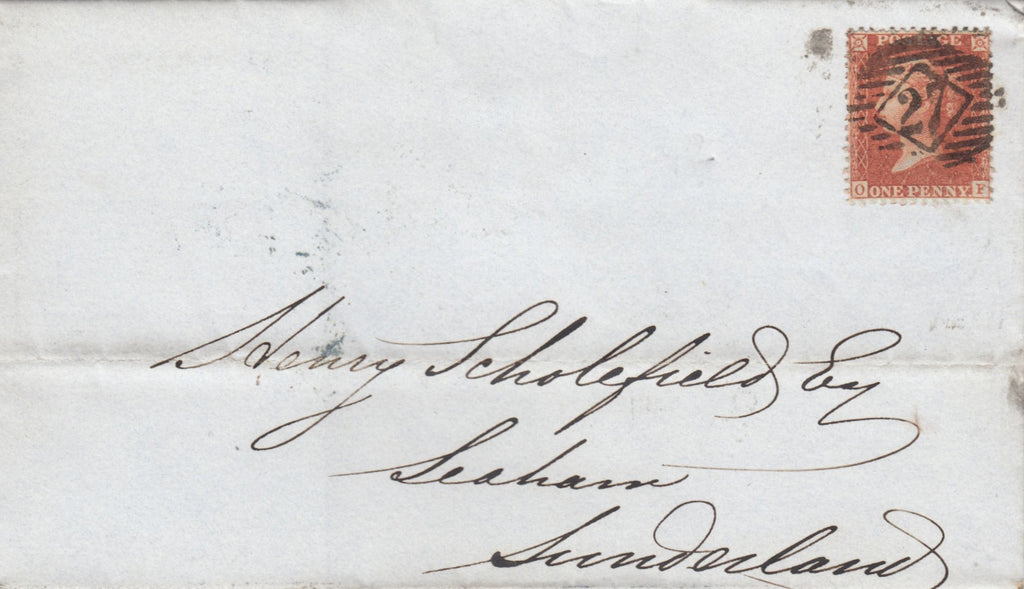 POSTAGE
27
O ONE PENNY. F
Henry Scholefield Esq
Seaham
Sunderland